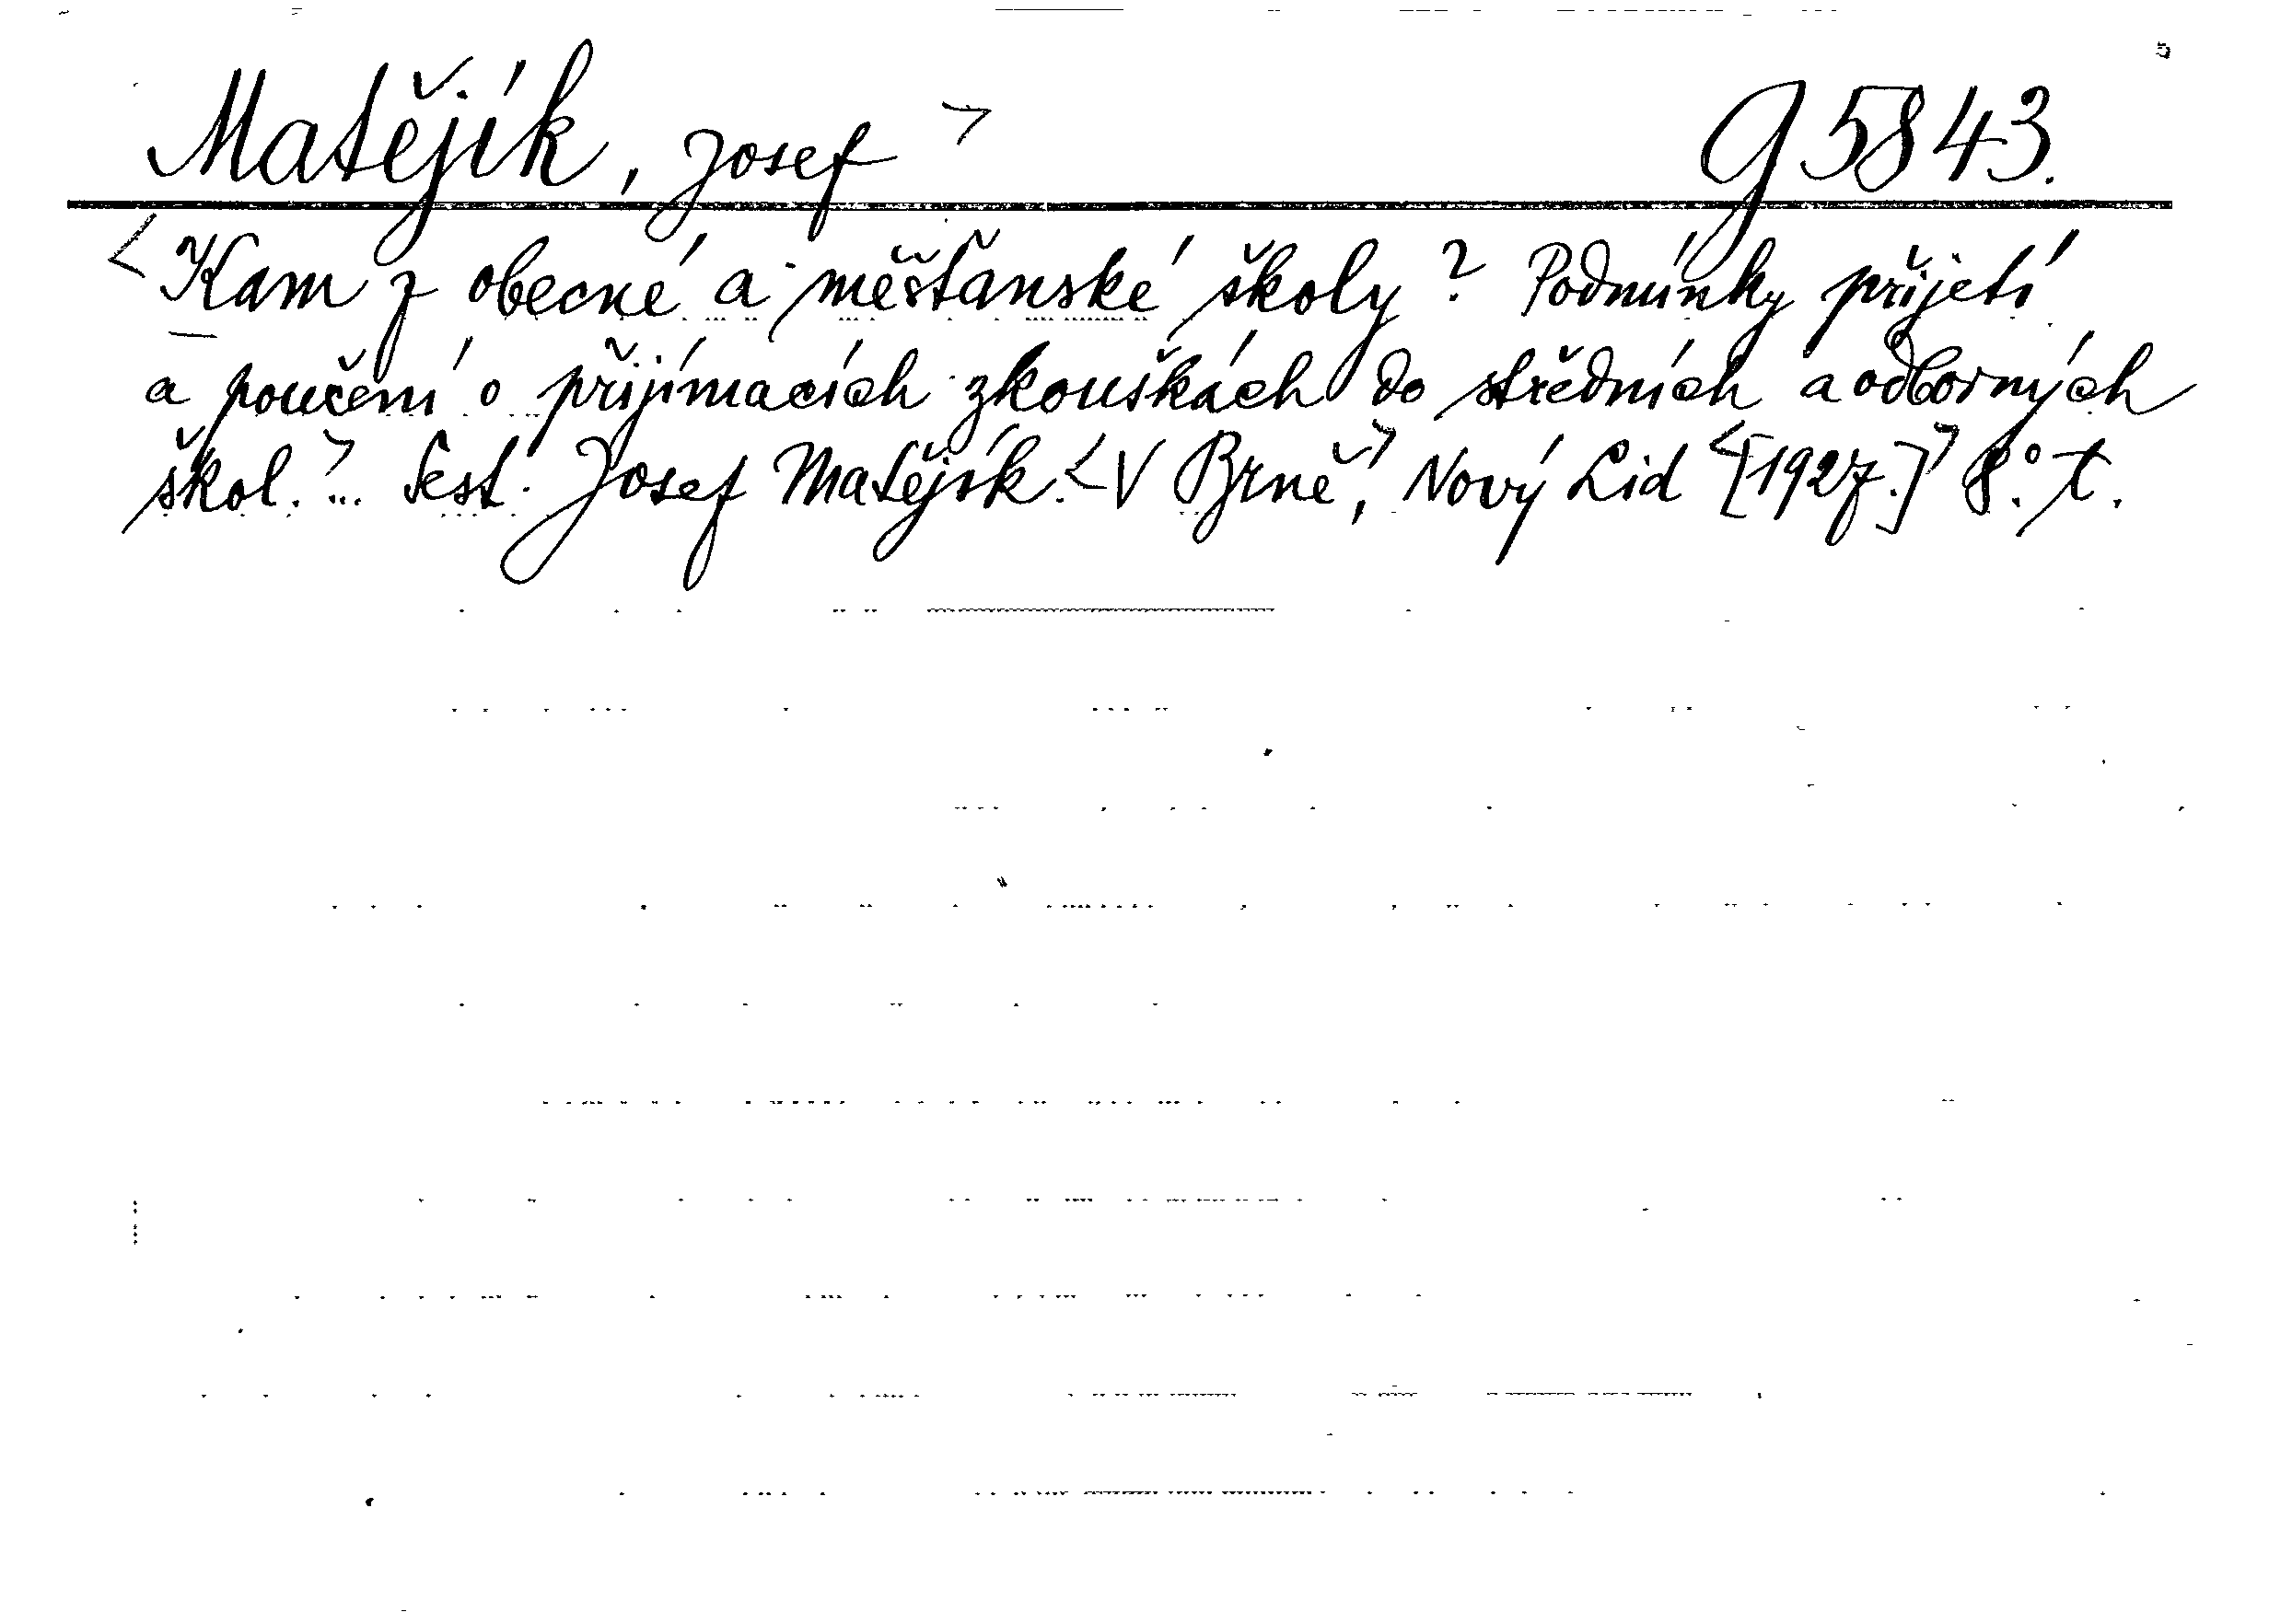 Matějík, Josef > g 5843.
<Kam z obecné a měšťanské školy? Podmínky přijetí
a poučení o přijímacích zkouškách do středních a odborných
škol.> ... Sest. Josef Matějík. <V Brně,> Nový Lid <[1927.]> 8.° t.